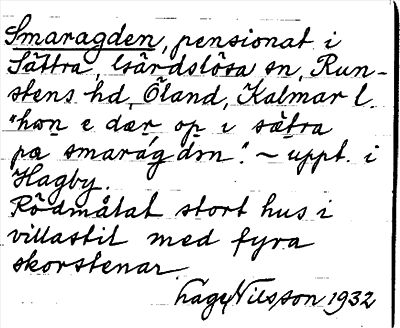 Smaragden, pensionat i
Sättra, Gärdslösa sn, Run-
stens hd, Öland, Kalmar l.
"hɷn e dær op ɩ sætra
pæ smarágdɷn". ~ uppt. i
Hagby.
Rödmålat stort hus i
villastil med fyra
skorstenar.
Nilsson 1932